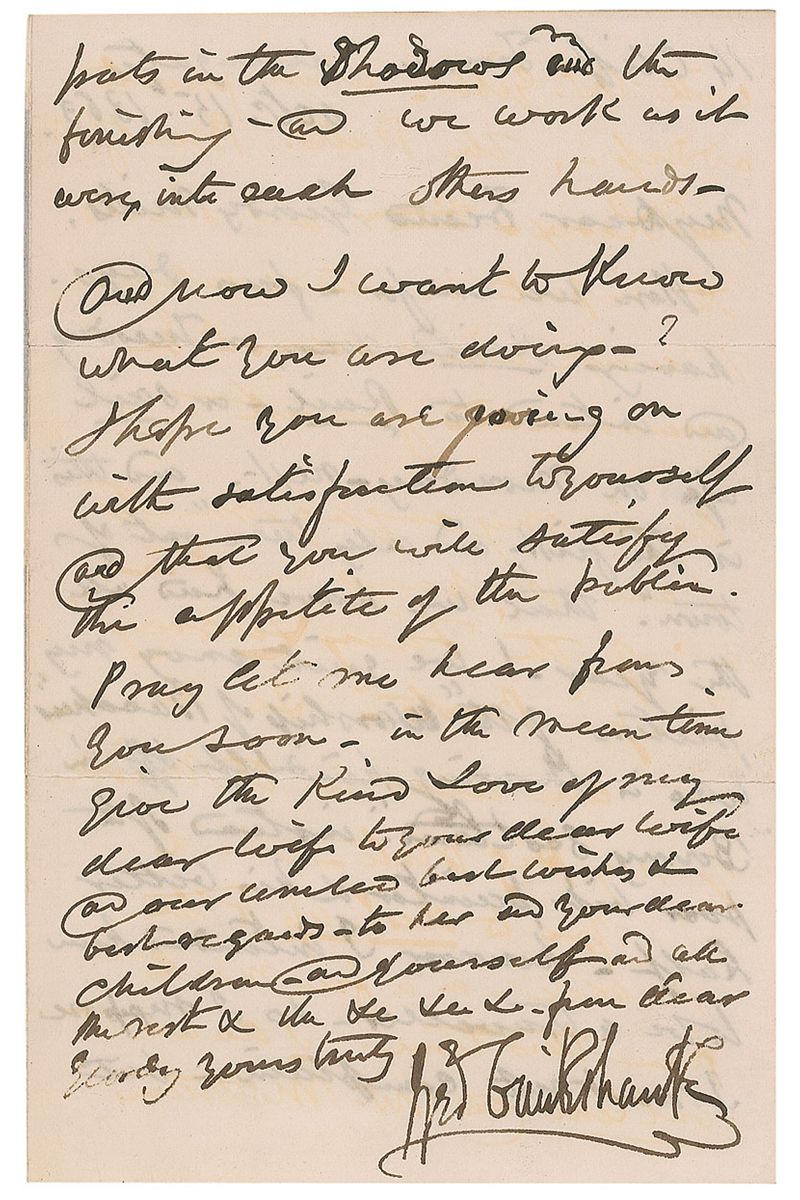 puts in the Shadows and the
finishing - and we work as it
were, into each others hands -
and now I want to Know
what you are doing - ?
I hope you are going on
with satisfaction to yourself
and that you will satisfy
the appetite of the public.
Pray let me hear from
you soon - in the mean time
give the Kind Love of my
dear wife to your dear wife
and our united best wishes &
best regards - to her and your dear
children - and yourself and all
the rest & the &c &c &c - from dear
yours truly
Geo Cruikshank